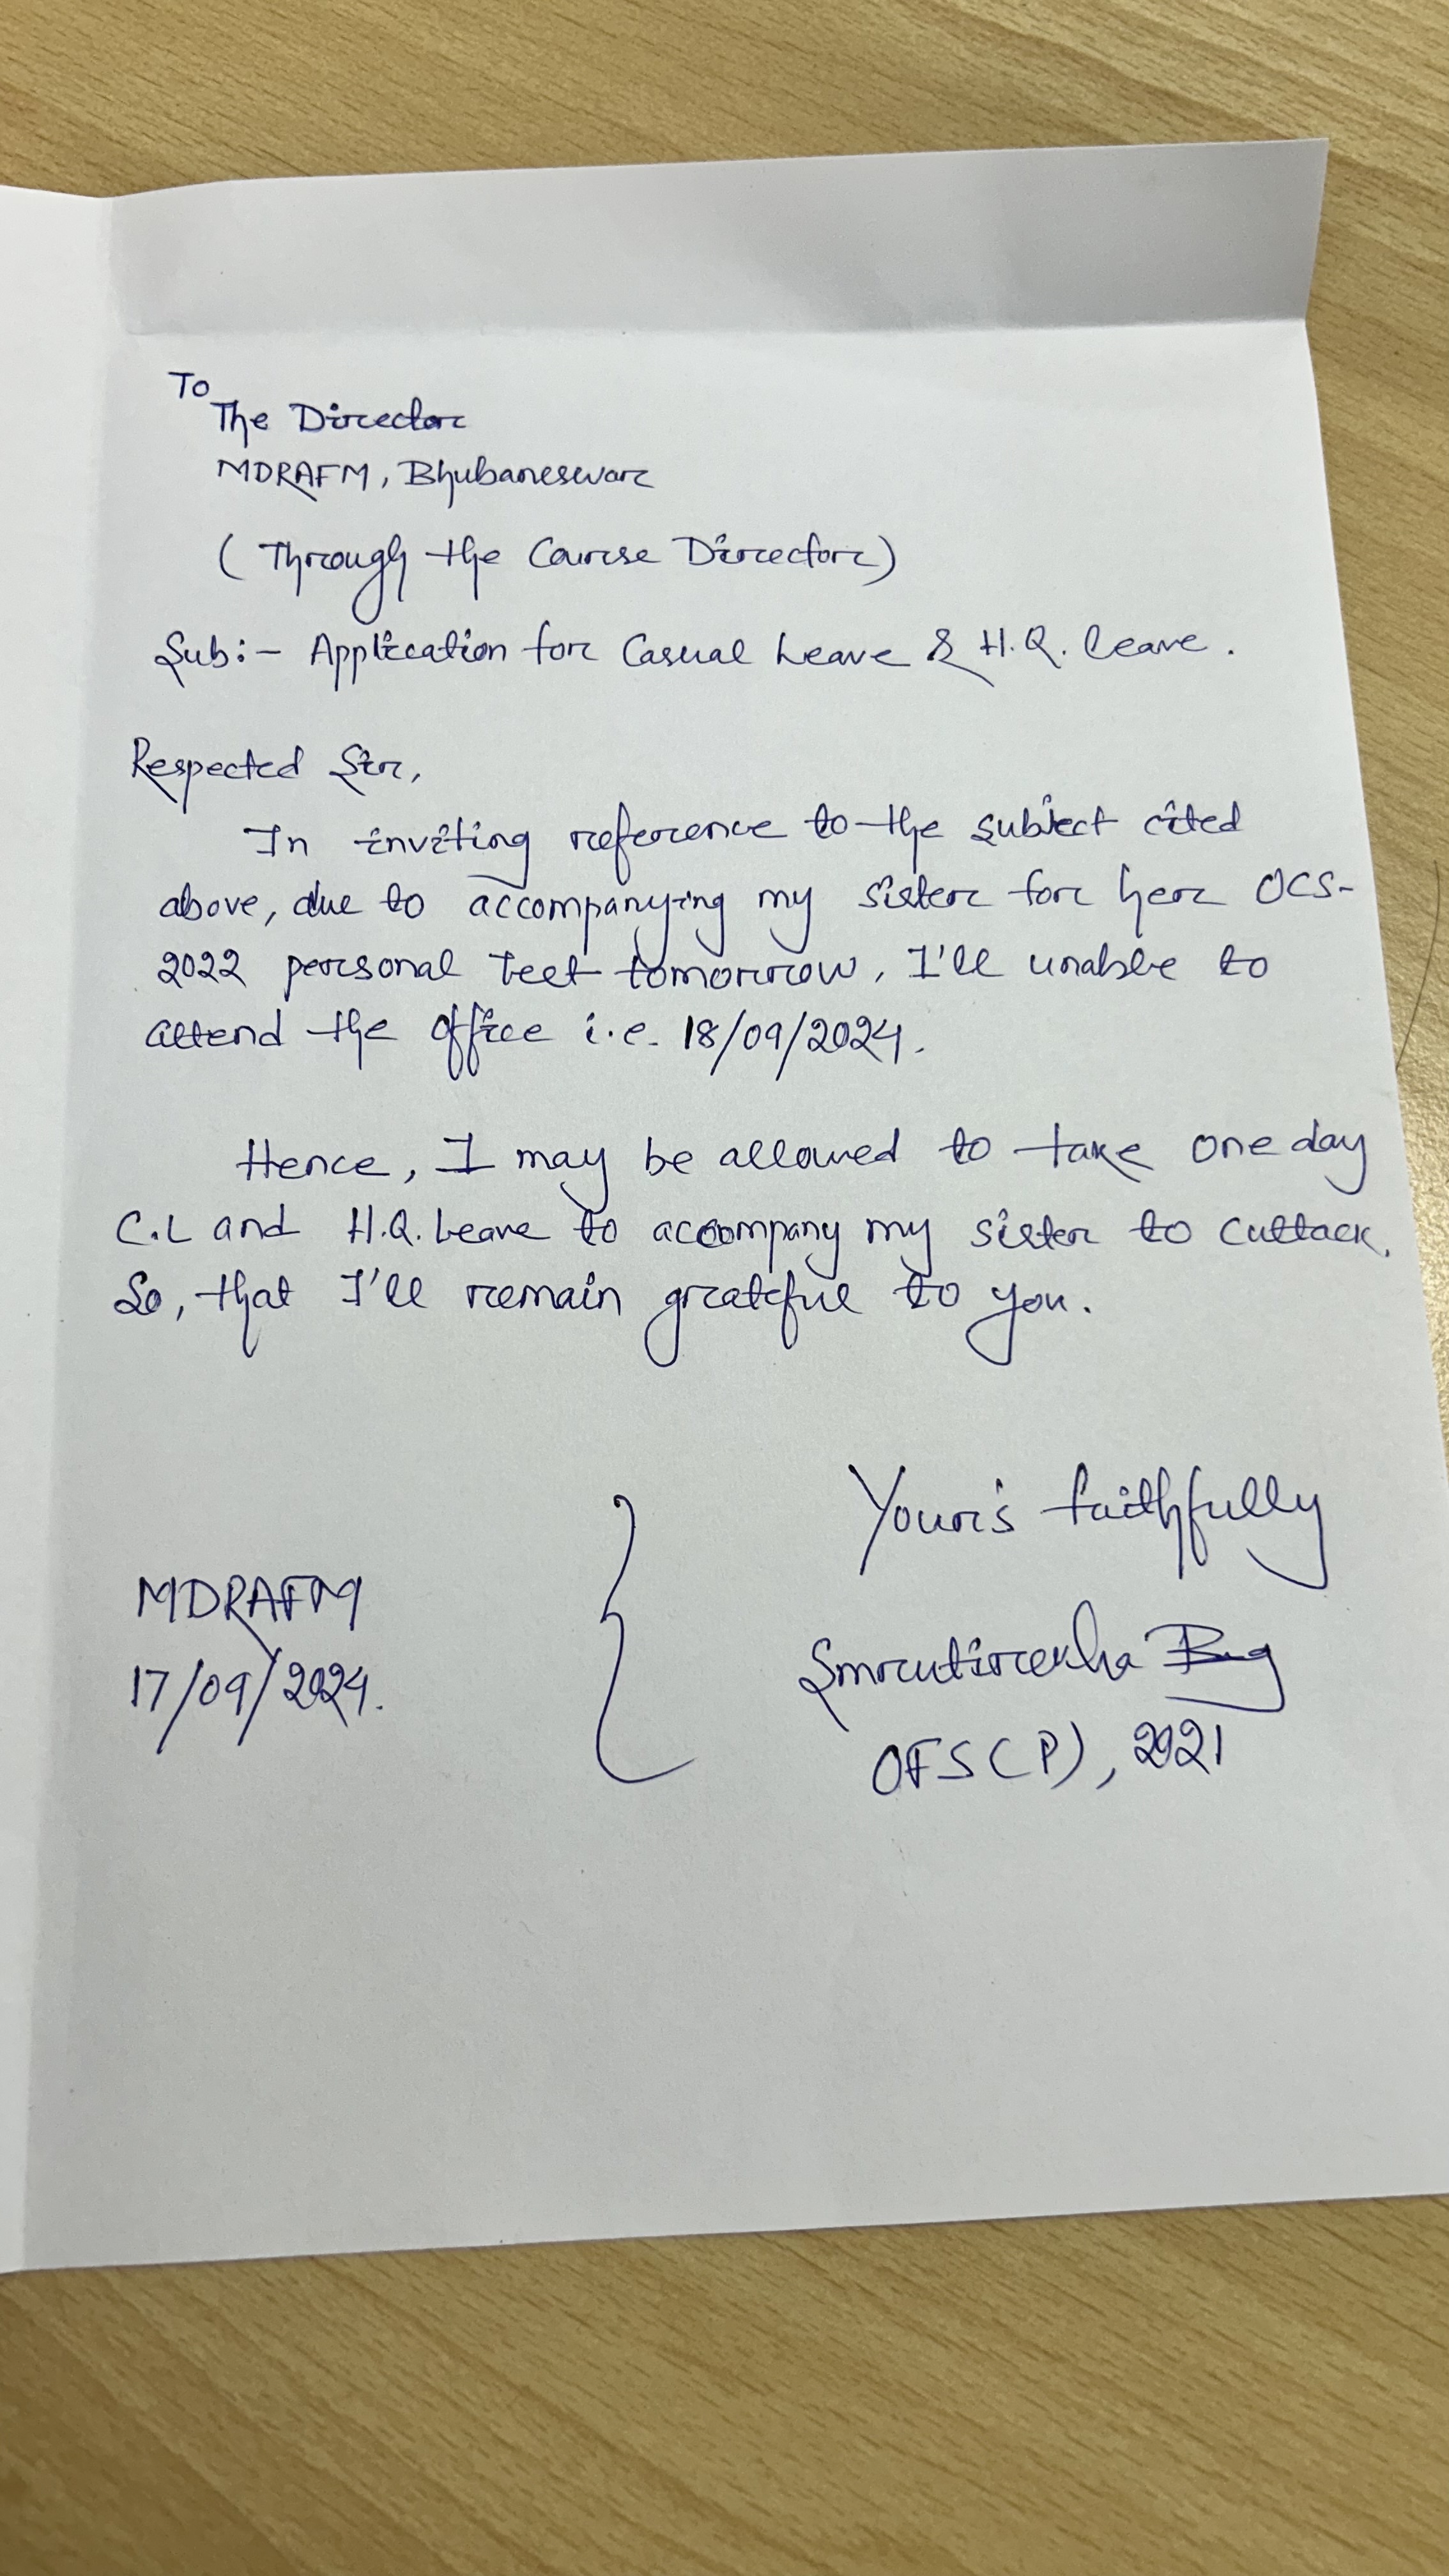 To
The Director
MDRAFM, Bhubaneswar
(Through the Course Director)
Sub:- Application for Casual Leave & H.Q. leave.
Respected Sir,
In inviting reference to the subject cited
above, due to accompanying my sister for her OCS-
2022 personal test tomorrow, I'll unable to
attend the office i.e. 18/09/2024.
Hence, I may be allowed to take one day
C.L and H.Q. Leave to accompany my sister to Cuttack.
So, that I'll remain grateful to you.
Your's faithfully
MDRAFM
Smrutirekha Bag
17/09/2024.
OFS(P), 2021